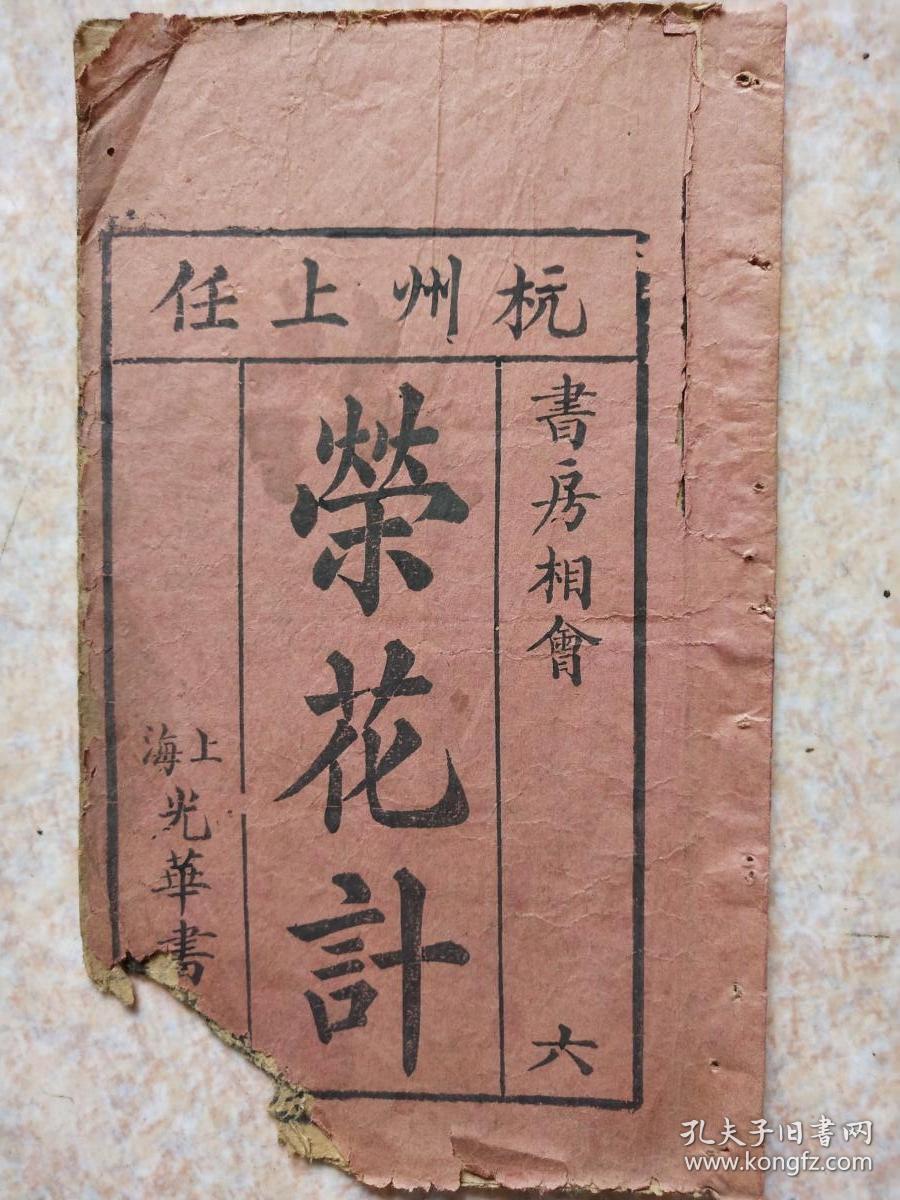 杭州上任
書房相會
六
榮花計
上海
光華書
孔夫子旧書网
www.kongfz.com